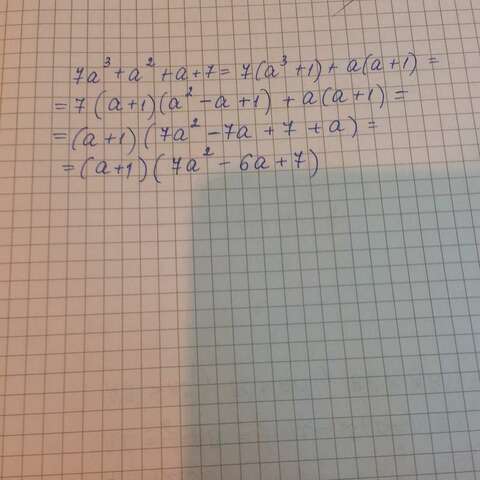 7a³ + a² + a + 7 = 7(a³ + 1) + a(a + 1) =
= 7(a + 1)(a² - a + 1) + a(a + 1) =
= (a + 1)(7a² - 7a + 7 + a) =
= (a + 1)(7a² - 6a + 7)